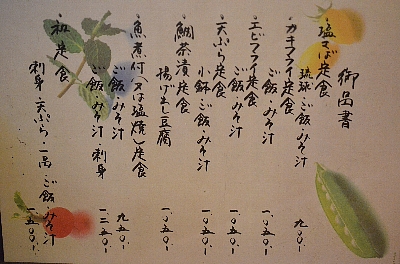 御品書
・塩さば定食
琉球・ご飯・みそ汁 九〇〇
・カキフライ定食
ご飯・みそ汁 一、〇五〇
・エビフライ定食
ご飯・みそ汁 一、〇五〇
・天ぷら定食
小鉢・ご飯・みそ汁 一、〇五〇
・鯛茶漬定食
揚げ出し豆腐 一、〇五〇
・魚煮付(又は塩焼)定食
ご飯・みそ汁 九五〇
ご飯・みそ汁・刺身 一、二五〇
・和定食
刺身・天ぷら・一品・ご飯・みそ汁 一、五〇〇